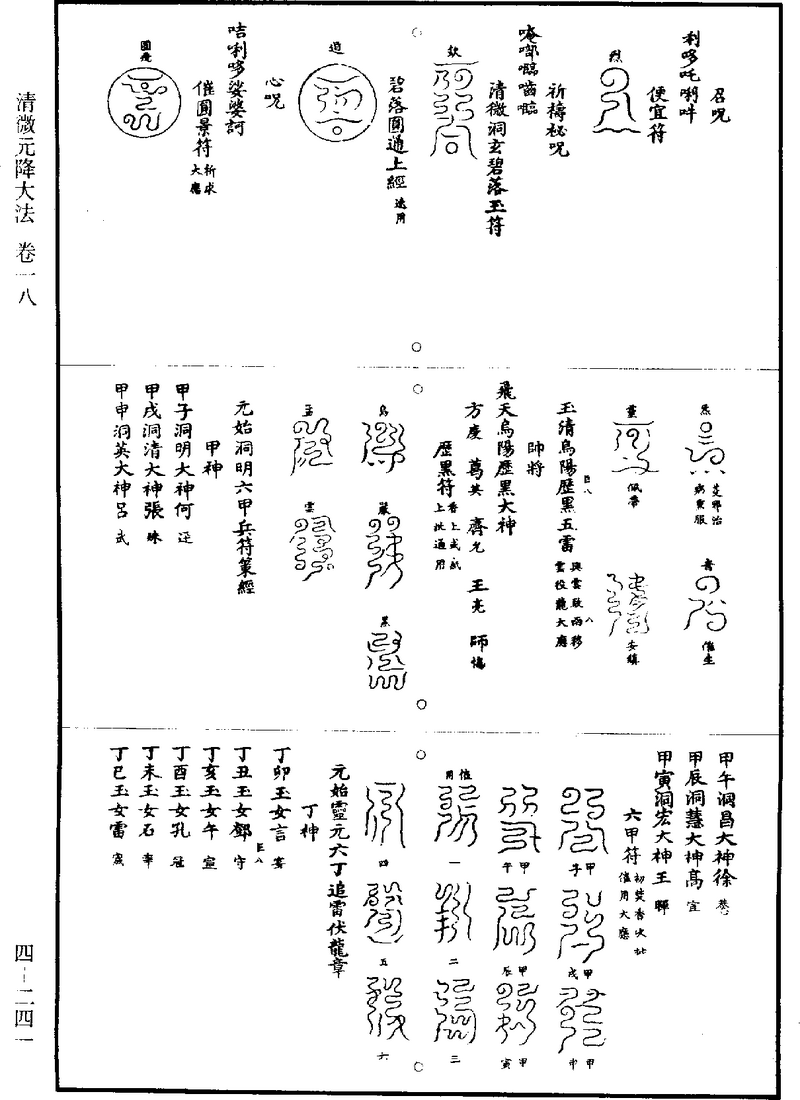 清微元降大法　卷一八
四—二四一
召呪
利哆吒唎吽
便宜符
烈
祈禱祕呪
唵啷𡅏齒𡅏
清微洞玄碧落玉符
欻
碧落圓通上經 遠用
逍
心呪
咭唎哆娑婆訶
催圓景符 祈求大應
圓
炁
書 催生
董 佩帶
安鎮
玉清烏陽歷黑五雷 興雲致雨移雲役龍大應
帥將
飛天烏陽歷黑大神
方度　葛共　齊允　王亮　師
歷黑符
烏
嚴
黑
五
雲
元始洞明六甲兵符策經
甲神
甲子洞明大神何
甲戌洞清大神張 殊
甲申洞英大神呂 武
甲午洞昌大神徐
甲辰洞慧大神高 宜
甲寅洞宏大神王
六甲符
甲子
甲戌
甲申
甲午
甲辰
甲寅
催用
一
二
三
四
五
六
元始靈元六丁追雷伏龍章
丁神
丁卯玉女言 寄
丁丑玉女鄧 守
丁亥玉女午 宣
丁酉玉女孔 冠
丁未玉女石 牢
丁巳玉女雷 宬